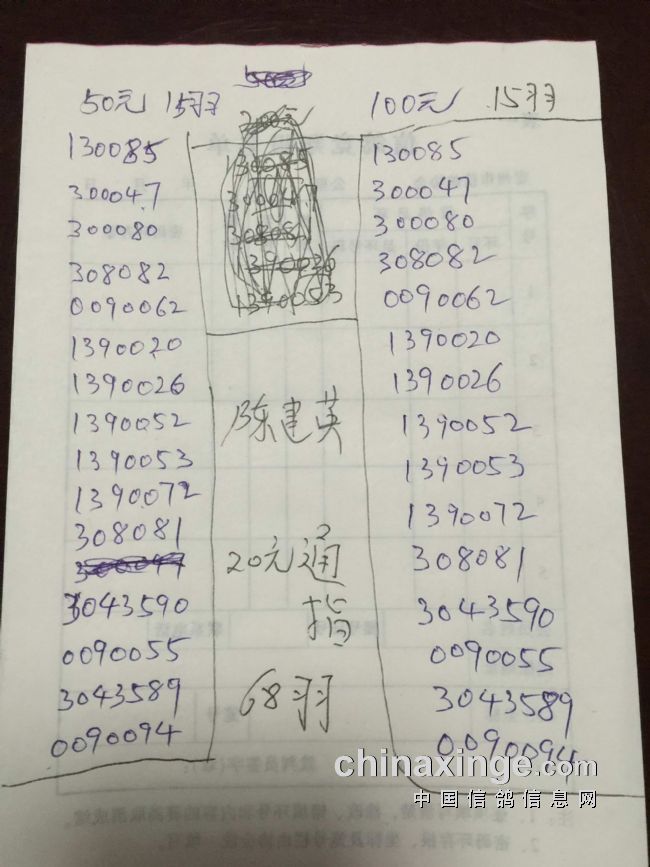 50元 15羽
130085
300047
300080
308082
0090062
1390020
1390026
1390052
1390053
1390072
308081
3043590
0090055
3043589
0090094
200元
130085
300047
308081
1390020
1390053
陈建英
20元通
指
68羽
100元 15羽
130085
300047
300080
308082
0090062
1390020
1390026
1390052
1390053
1390072
308081
3043590
0090055
3043589
0090094
chinaxinge.com
中国信鸽信息网